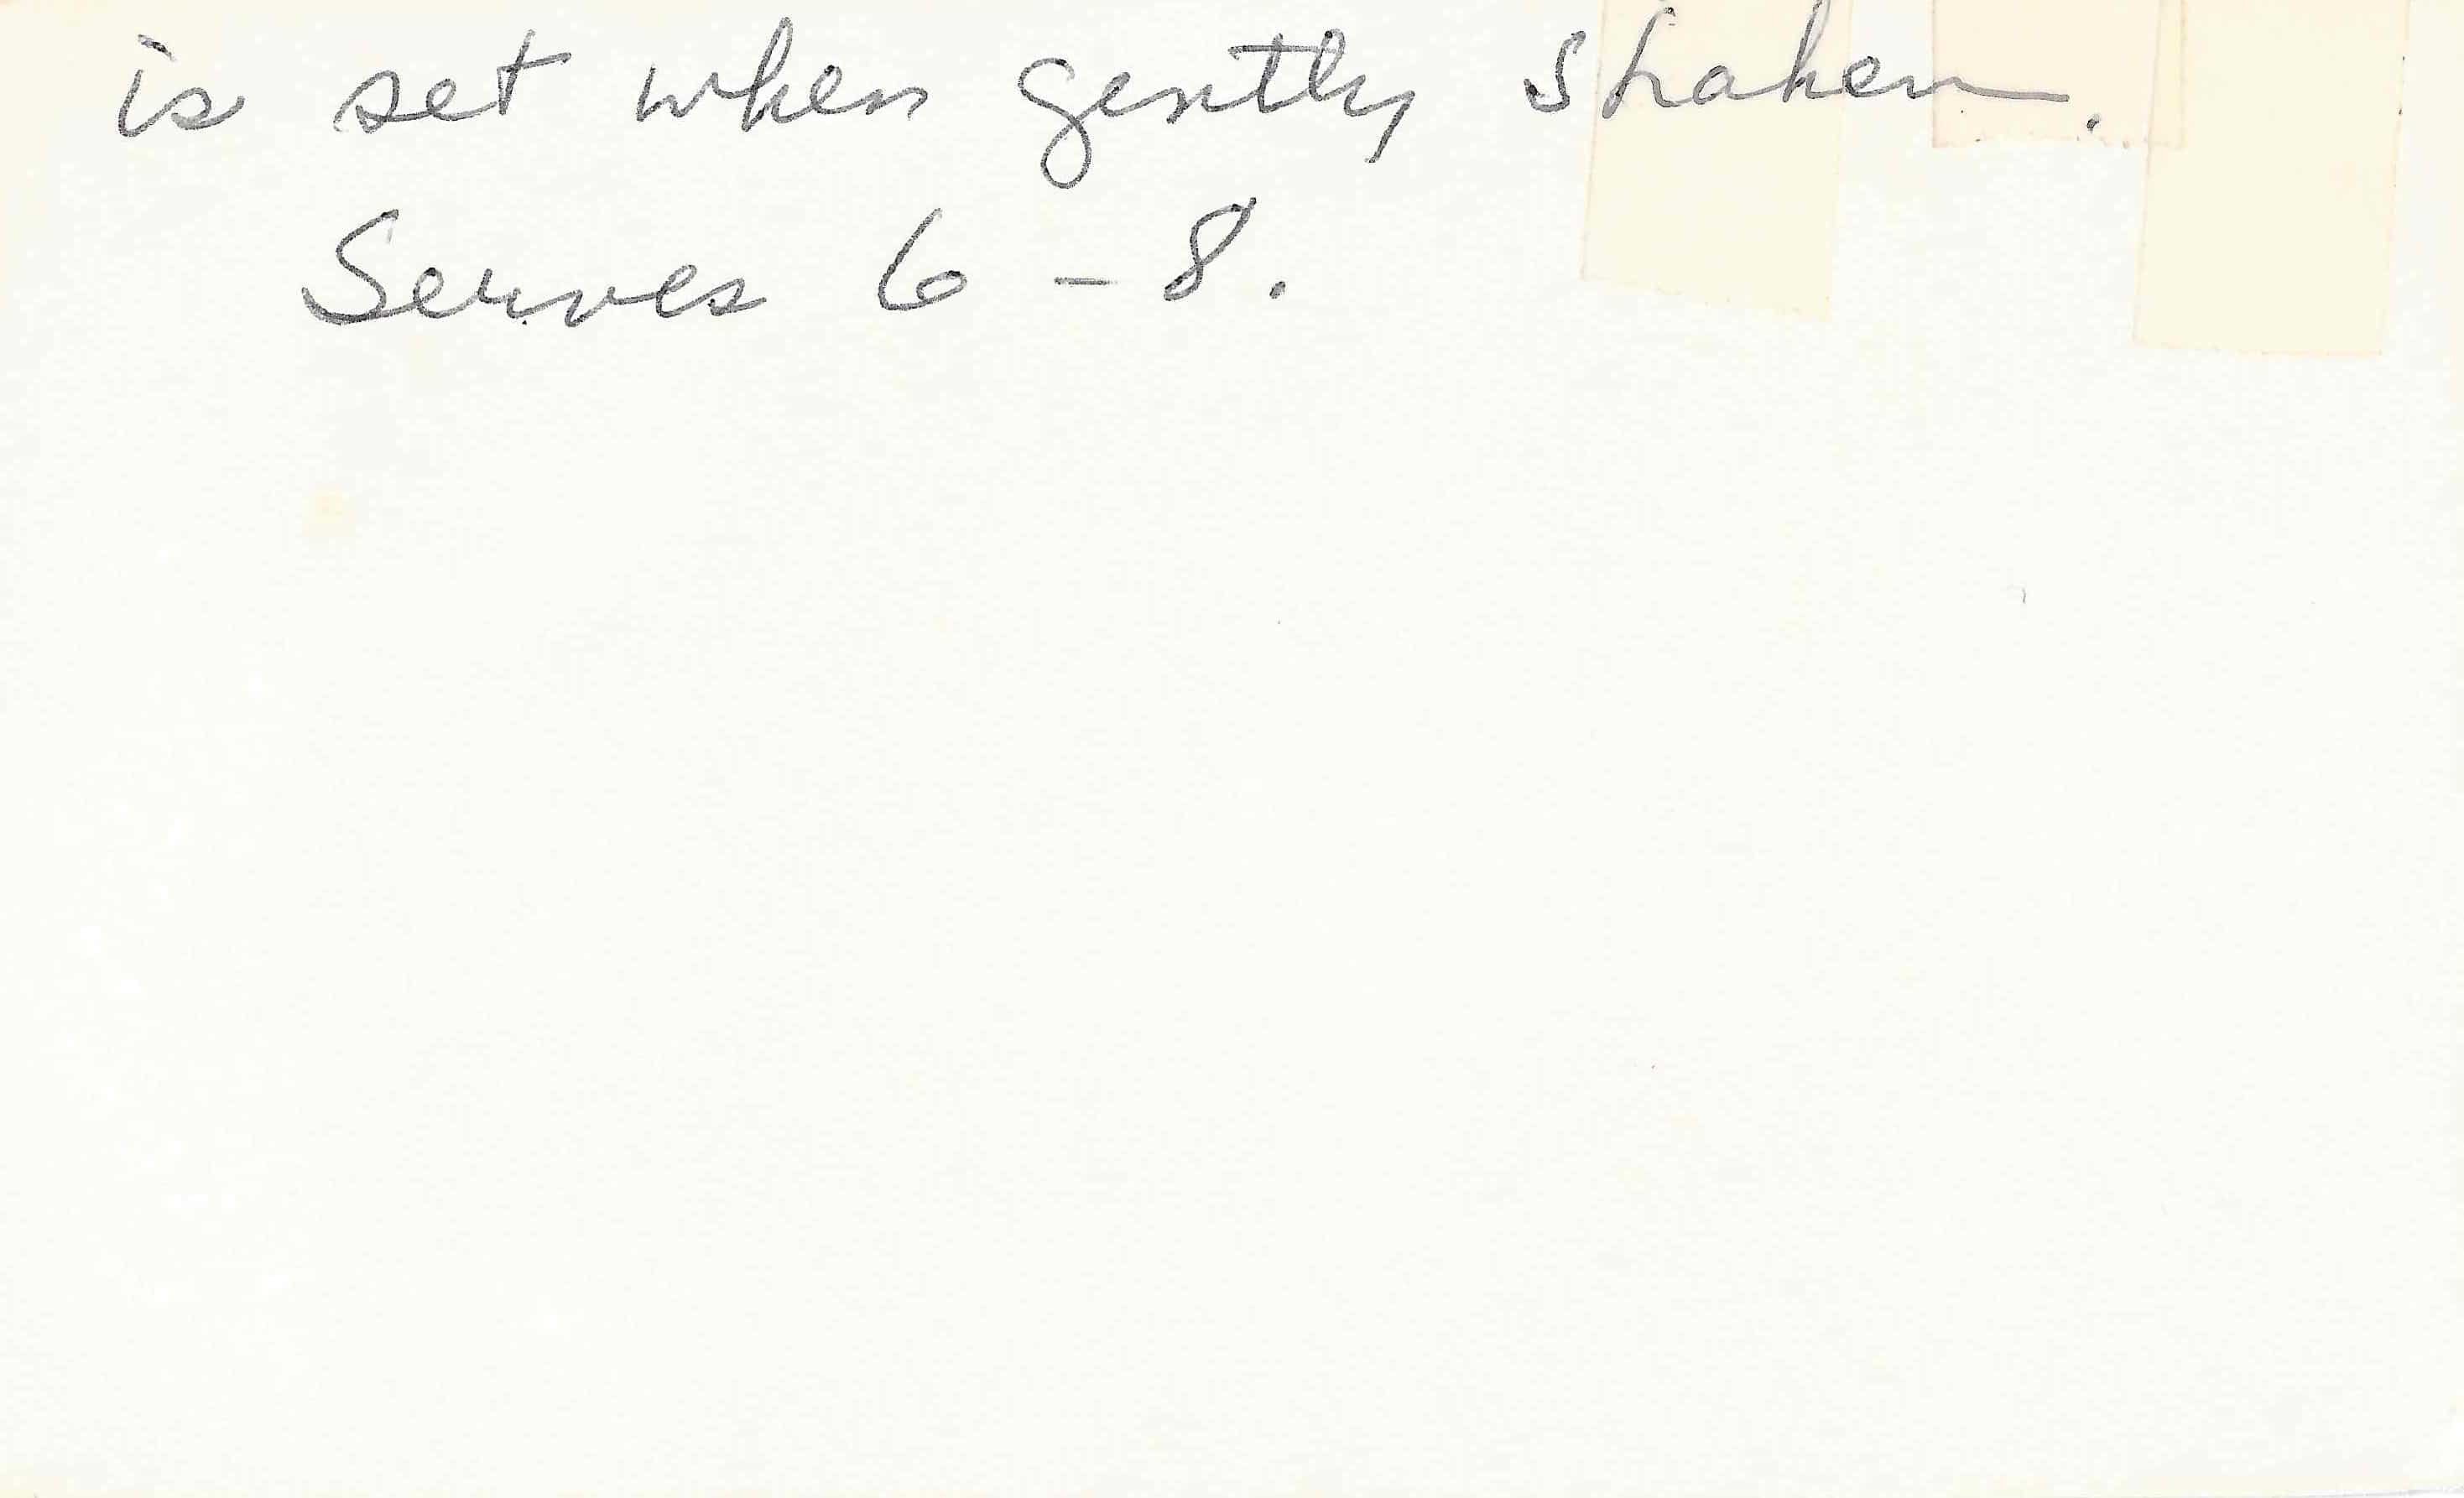 is set when gently shaken.
Serves 6 - 8.